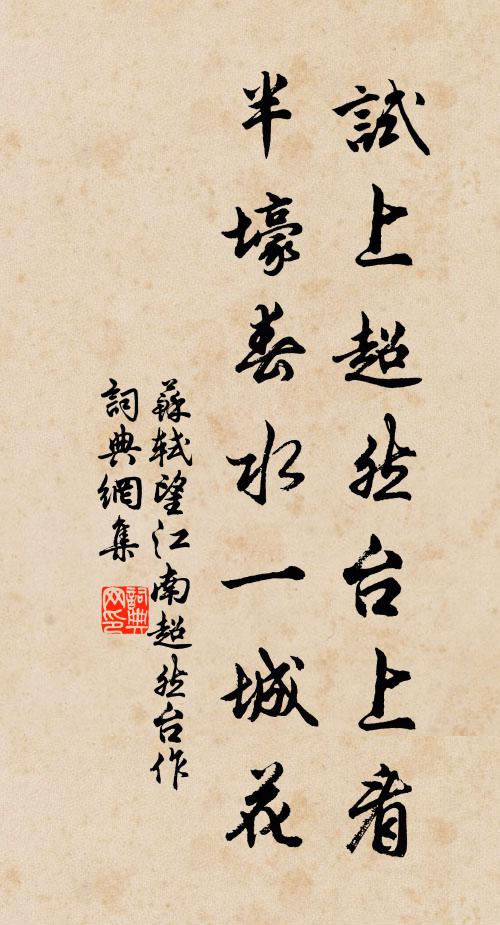 試上超然台上看
半壕春水一城花
蘇軾望江南超然台作
詞典網集
詞典网印